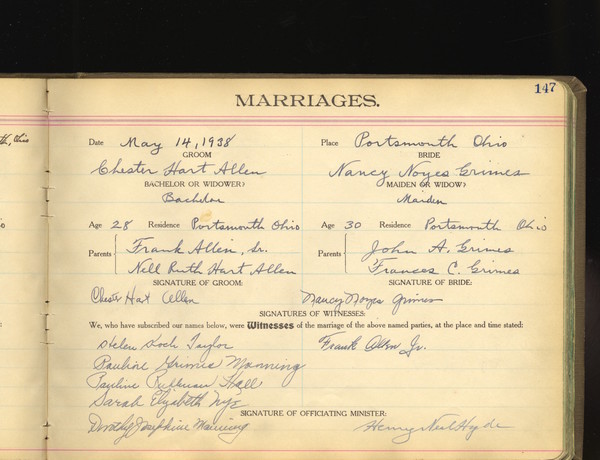 147
MARRIAGES.
th, Ohio
Date May 14, 1938 Place Portsmouth Ohio
GROOM BRIDE
Chester Hart Allen Nancy Noyes Grimes
BACHELOR OR WIDOWER? MAIDEN OR WIDOW?
Bachelor Maiden
Age 28 Residence Portsmouth Ohio Age 30 Residence Portsmouth Ohio
Parents Frank Allen, Sr. Parents John A. Grimes
Nell Ruth Hart Allen Frances C. Grimes
SIGNATURE OF GROOM: SIGNATURE OF BRIDE:
Chester Hart Allen Nancy Noyes Grimes
SIGNATURES OF WITNESSES:
We, who have subscribed our names below, were Witnesses of the marriage of the above named parties, at the place and time stated:
Helen Koch Taylor Frank Allen Jr.
Pauline Grimes Manning
Pauline Hall
Sarah Elizabeth Nye
SIGNATURE OF OFFICIATING MINISTER:
Dorothy Josephine Manning Henry Neal Hyde